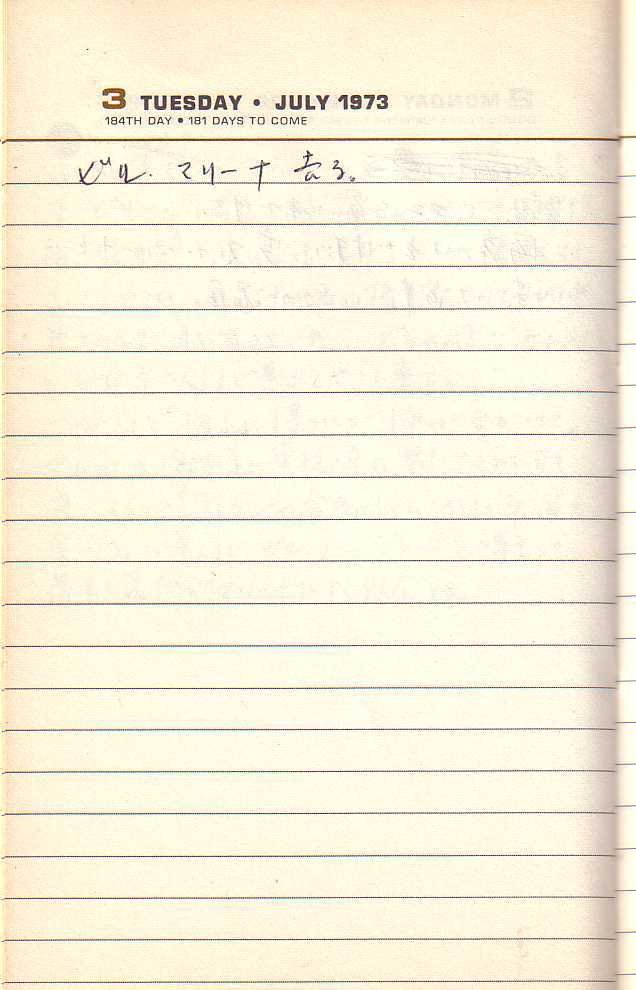 3 TUESDAY • JULY 1973
184TH DAY • 181 DAYS TO COME
ビル. マリーナ 去る。